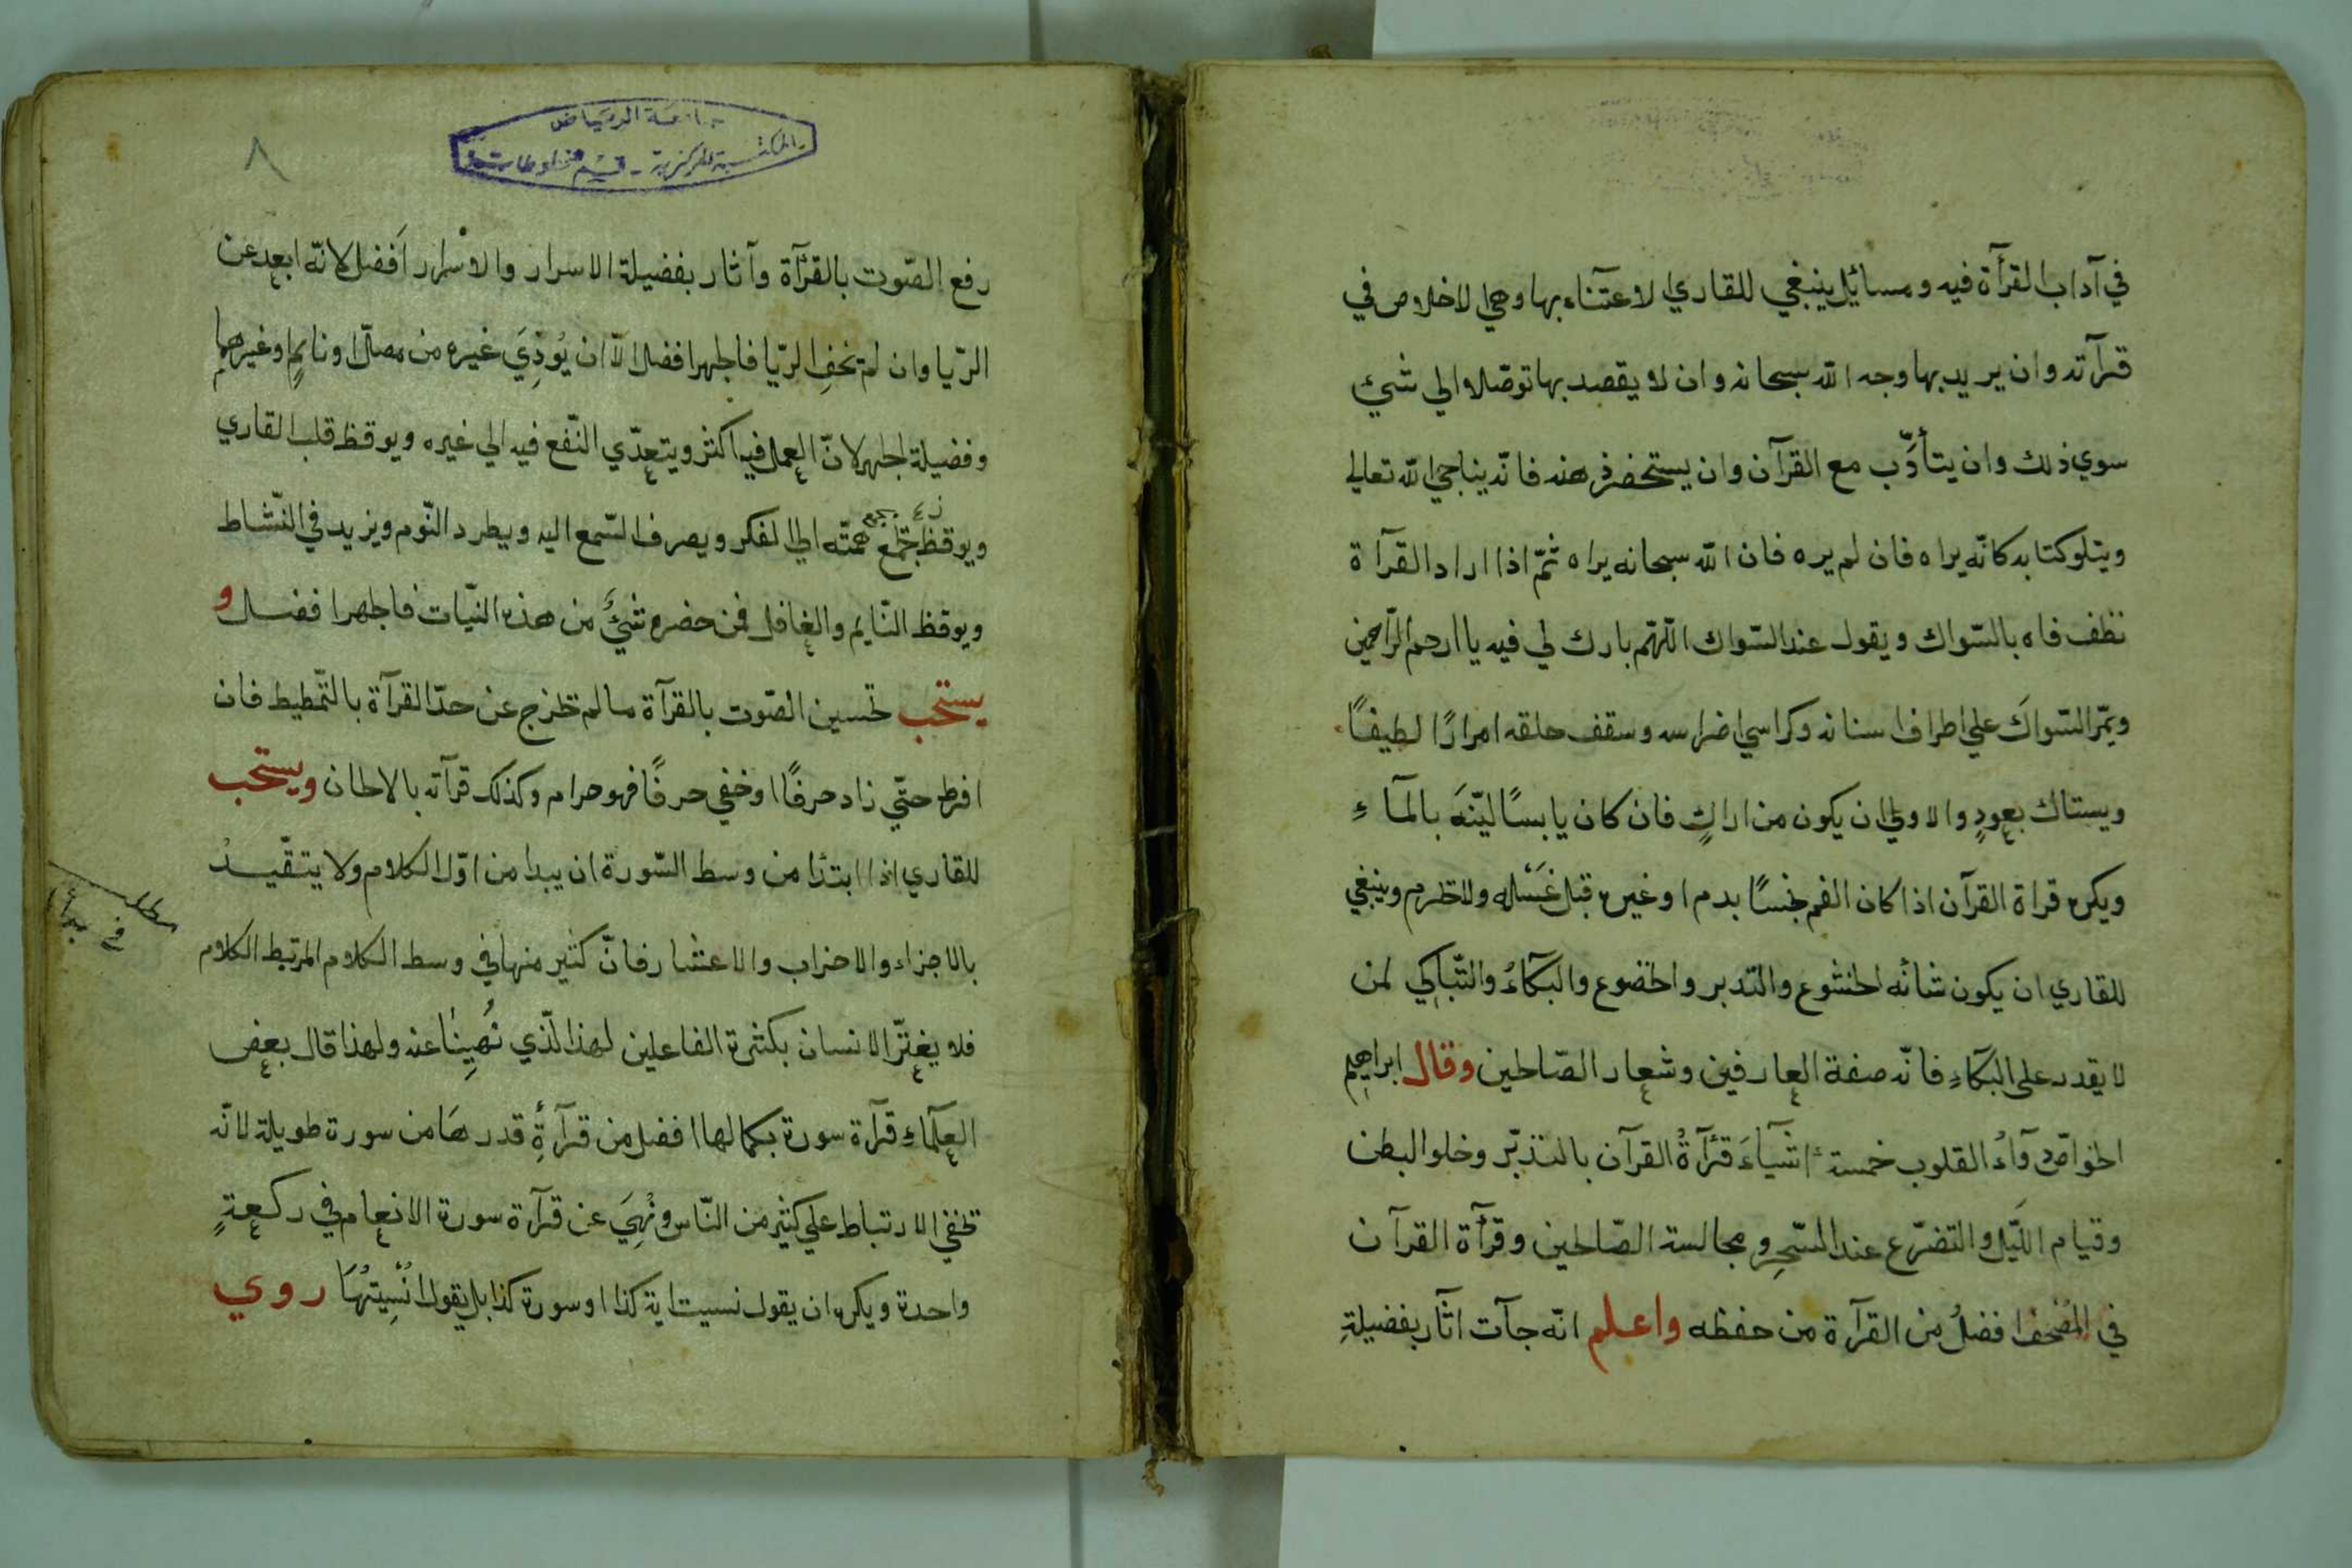 في آداب القرأة فيه ومسائيل ينبغي للقاري الاعتناء بها وهي الاخلاص في
قرآته وان يريد بها وجه الله سبحانه وان لا يقصد بها توصّلا الي شئ
سوي ذلك وان يتأدّب مع القرآن وان يستحضر ذهنه فانّه يناجي الله تعالي
ويتلو كتابه كانّه يراه فان لم يره فان الله سبحانه يراه ثمّ اذا اراد القرآة
نظف فاه بالسّواك ويقول عند السّواك اللّهم بارك لي فيه يا ارحم الرّاحمين
ويمّر السّواكَ علي اطراف اسنانه وكراسي اضراسه وسقف حلقه امرارًا لطيفًا
ويستاك بعودٍ والاولي ان يكون من اراكٍ فان كان يابسًا ليّنَهَ بالمآءِ
ويكره قراة القرآن اذا كان الفم نجسًا بدم او غيره قبل غَسْله ولا تحرم وينبغي
للقاري ان يكون شأنُه الخشوع والتّدبر والخضوع والبكآءُ والتّباكِي لمن
لا يقدر على البكآءِ فانّه صفة العارفين وشعار الصّالحين وقال ابراهيم
الخواصّ دوآءُ القلوب خمسة اشيآءَ قرآةُ القرآن بالتدبّر وخلو البطن
وقيام اللّيل والتضرّع عند السّحرِ ومجالسة الصّالحين وقرآة القرآن
في المُصْحف افضلُ من القرآة من حفظه واعلم انّه جآت اثآر بفضيلةِ
جامعة الرياض
المكتبة المركزية - قسم المخطوطات
٨
رفع الصّوت بالقرآة وآثار بفضيلة الاسرار والاسرار اَفضل لانّه ابعد عن
الرّيا وان لم تخفِ الرّيا فالجهر افضل الّا ان يُوذِيَ غيره من مصلّ او نايمٍ او غيرهما
وفضيلة الجهر لانّ العمل فيه اكثر ويتعدّي النّفع فيه الي غيره ويوقظ قلب القاري
ويوقظ جمع همّته الي الفكر ويصرف السّمع اليه ويطرد النّوم ويزيد في النّشاط
ويوقظ النّايم والغافل فمن حضره شئٌ من هذه النيّات فالجهر افضل و
يستحب تحسين الصّوت بالقرآة ما لم تخرج عن حدّ القرآة بالتّمطيط فان
افرط حتّي زاد حرفًا او خفي حرفًا فهو حرام وكذلك قرآته بالالحان ويستحب
للقاري اذا ابتدا من وسط السّورة ان يبدا من اوّل الكلام ولا يتقّيدُ
بالاجزاء والاحزاب والاعشار فانّ كثير منها في وسط الكلام المرتبط الكلام
فلا يغترّ الانسان بكثرة الفاعلين لهذا الّذي نُهِينٰا عنه ولهذا قال بعض
العلمآءِ قرآة سورة بكمالها افضل من قرآةِ قدرهَا من سورة طويلة لانّه
تخفي الارتباط علي كثير من النّاس ونُهِيَ عن قرآة سورة الانعام في ركعةٍ
واحدة ويكره ان يقول نسيت اية كذا او سورة كذا بل يقول انُسِيتُهَا روي
مطلب